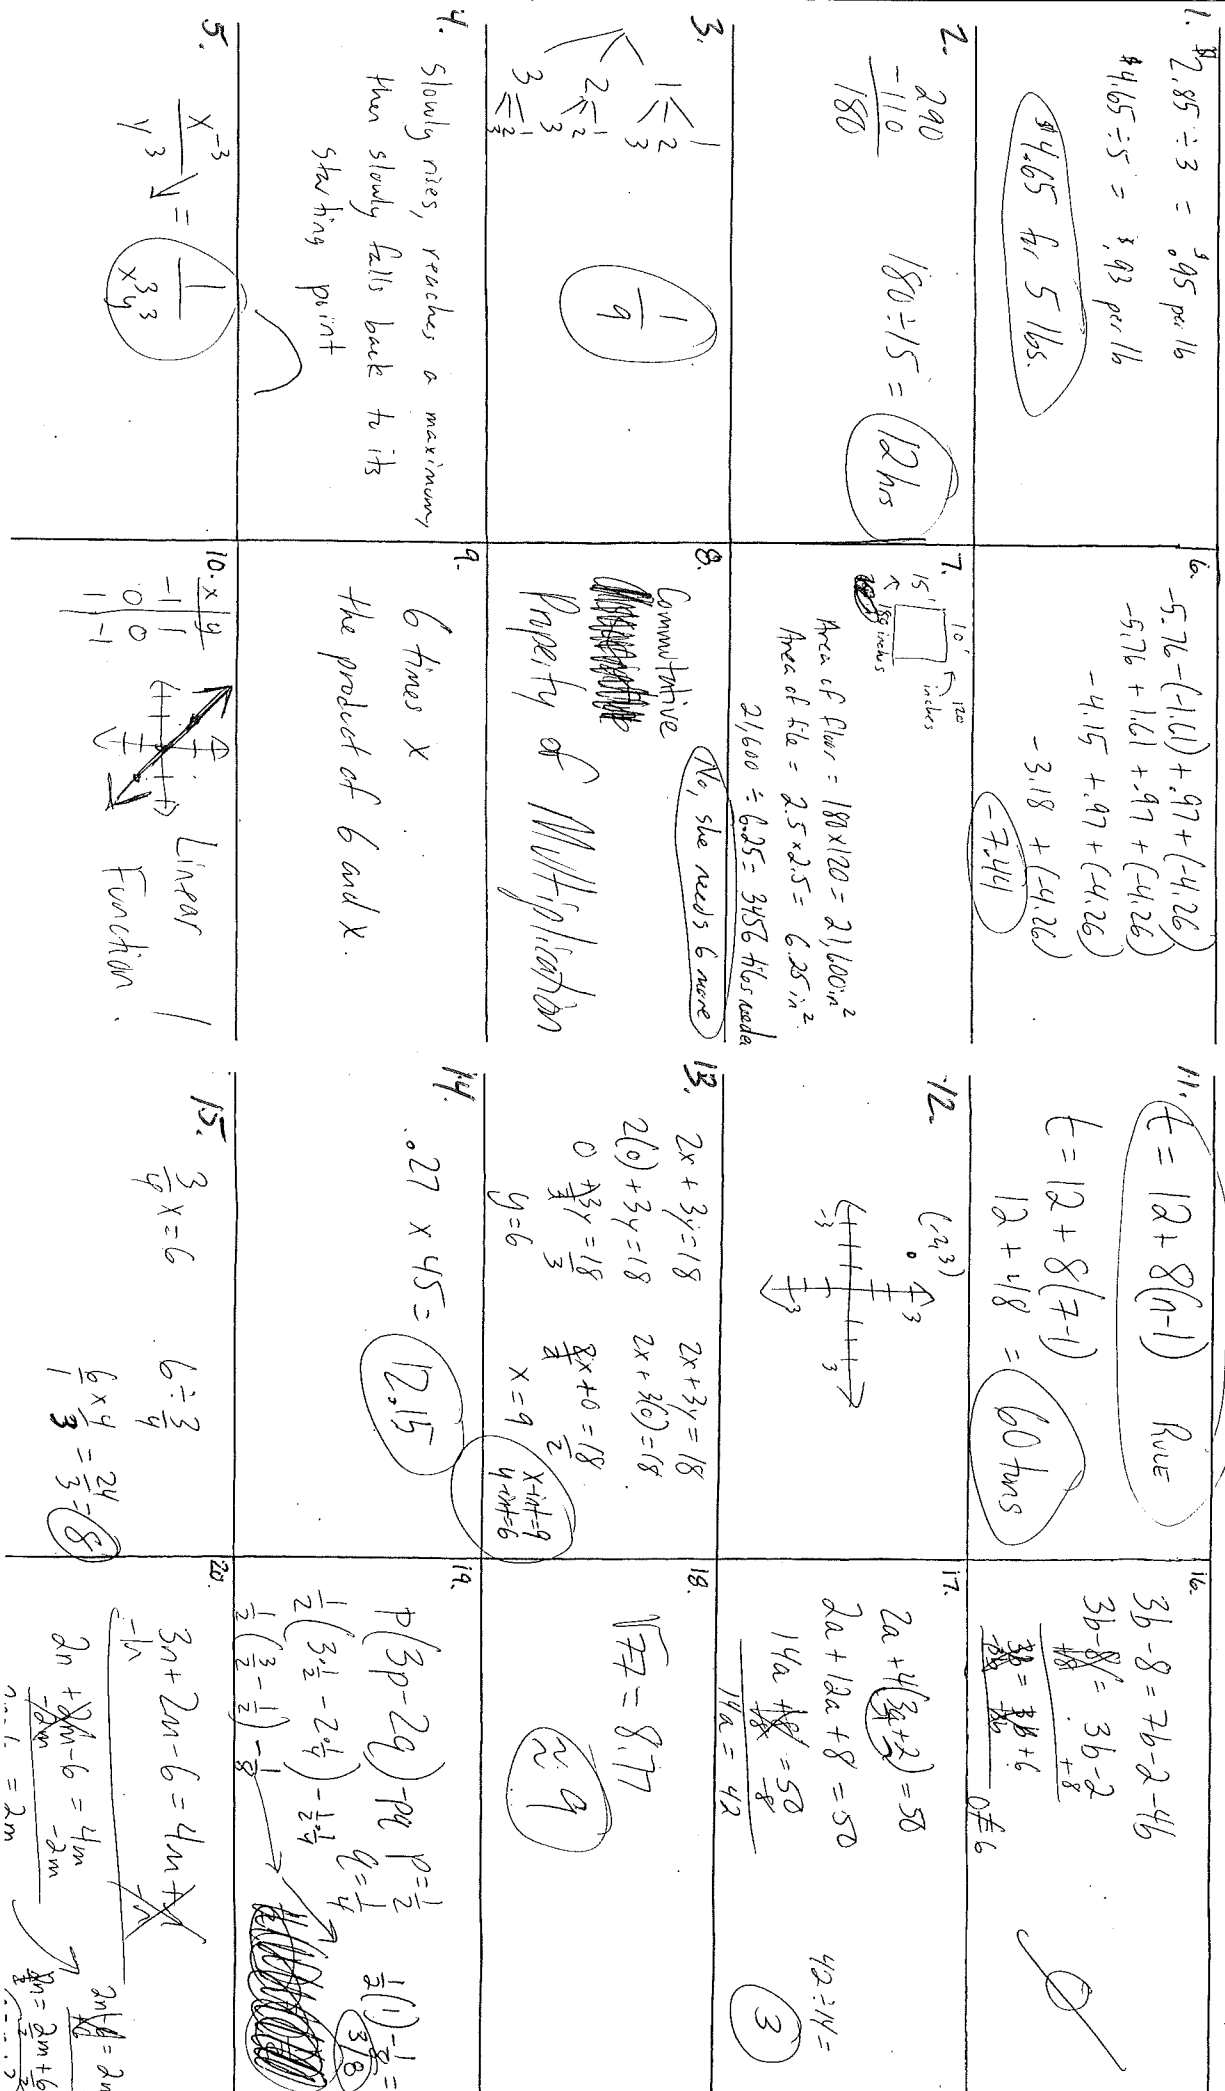 1. $2.85 ÷ 3 = $.95 per lb
$4.65 ÷ 5 = $.93 per lb
$4.65 for 5 lbs.
2. 290
-110
180
180 ÷ 15 = 12 hrs
3. 1 < 1 2 3
2 < 1 2 3
3 < 1 2 3
1/9
4. Slowly rises, reaches a maximum,
then slowly falls back to its
starting point
5. x^-3 / y^3 = 1 / x^3y^3
6. -5.76 - (-1.61) + .97 + (-4.26)
-5.76 + 1.61 + .97 + (-4.26)
-4.15 + .97 + (-4.26)
-3.18 + (-4.26)
-7.44
7. 10' 120 inches
15' 180 inches
Area of floor = 180x120 = 21,600 in^2
Area of tile = 2.5 x 2.5 = 6.25 in^2
21,600 ÷ 6.25 = 3456 tiles needed
No, she needs 6 more
8. Commutative
Property of Multiplication
9. 6 times x
the product of 6 and x.
10. x y
-1 1
0 0
1 -1
Linear
Function.
11. t = 12 + 8(n-1) RULE
t = 12 + 8(7-1)
12 + 48 = 60 turns
12. (-2,3)
3
-3 3
-3
13. 2x + 3y = 18
2(0) + 3y = 18
0 + 3y = 18
3 3
y = 6
2x + 3y = 18
2x + 3(0) = 18
2x + 0 = 18
2 2
x = 9
x-int = 9
y-int = 6
14. .27 x 45 = 12.15
15. 3/4 x = 6
6 ÷ 3/4
6/1 x 4/3 = 24/3 = 8
16. 3b - 8 = 7b - 2 - 4b
3b - 8 = 3b - 2
+8 +8
3b = 3b + 6
-3b -3b
0 ≠ 6
∅
17. 2a + 4(3a+2) = 50
2a + 12a + 8 = 50
14a + 8 = 50
-8 -8
14a = 42
42 ÷ 14 =
3
18. √77 = 8.77
≈ 9
19. p(3p - 2q) - pq p = 1/2
q = 1/4
1/2(3·1/2 - 2·1/4) - 1/2·1/4
1/2(3/2 - 1/2) - 1/8
1/2(1) - 1/8 =
3/8
20. 3n + 2m - 6 = 4m + n
-n -n
2n + 2m - 6 = 4m
-2m -2m
= 2m
2n - 6 = 2m
2n = 2m + 6